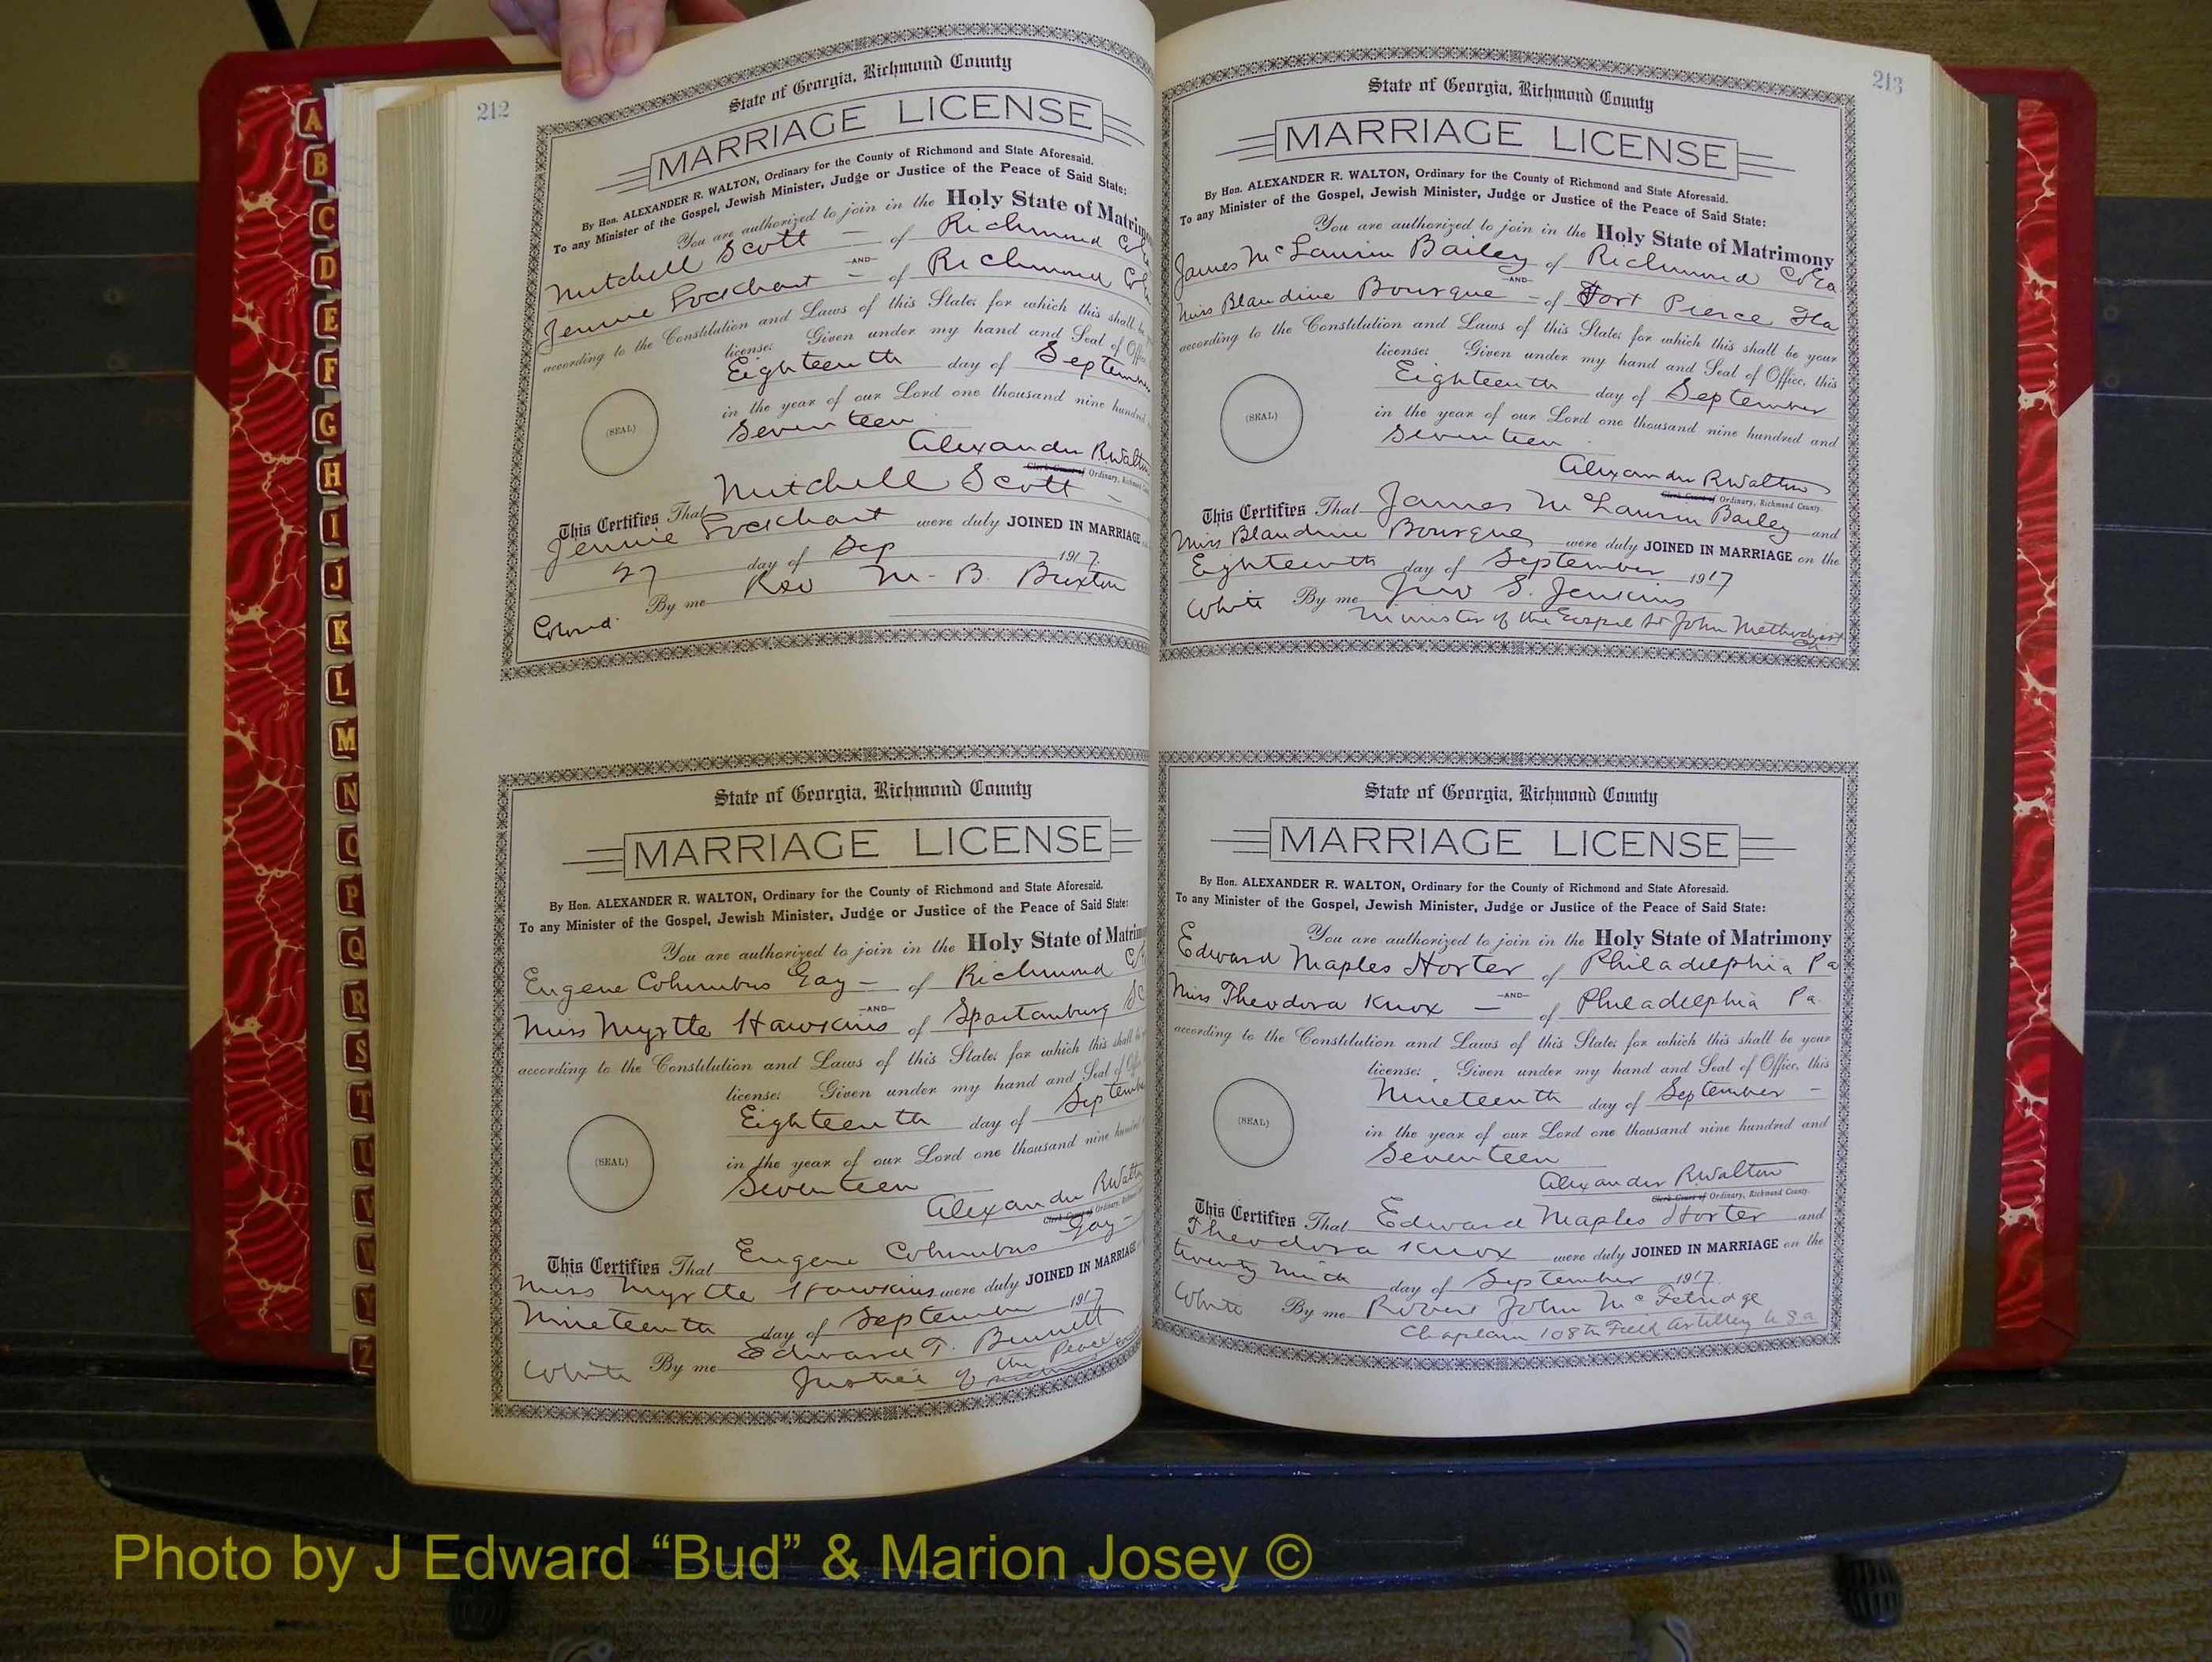 212
State of Georgia, Richmond County
MARRIAGE LICENSE
By Hon. ALEXANDER R. WALTON, Ordinary for the County of Richmond and State Aforesaid.
To any Minister of the Gospel, Jewish Minister, Judge or Justice of the Peace of Said State:
You are authorized to join in the Holy State of Matrimo
Mitchell Scott — of Richmond Co
—AND—
Jennie Lockhart — of Richmond Co
according to the Constitution and Laws of this State; for which this shall be
license: Given under my hand and Seal of Offi
Eighteenth day of Septem
(SEAL)
in the year of our Lord one thousand nine hundred
Seventeen
Alexander R Walton
Clerk Court of Ordinary, Richmond
This Certifies That Mitchell Scott —
Jennie Lockhart were duly JOINED IN MARRIAGE
27 day of Sep 1917.
Colored. By me Rev M. B. Buxton
State of Georgia, Richmond County
MARRIAGE LICENSE
By Hon. ALEXANDER R. WALTON, Ordinary for the County of Richmond and State Aforesaid.
To any Minister of the Gospel, Jewish Minister, Judge or Justice of the Peace of Said State:
You are authorized to join in the Holy State of Matrim
Eugene Columbus Gay — of Richmond Co
—AND—
Miss Myrtle Hawkins of Spartanburg SC
according to the Constitution and Laws of this State; for which this shall be
license: Given under my hand and Seal of Offi
Eighteenth day of Septembe
(SEAL)
in the year of our Lord one thousand nine hundred
Seventeen
Alexander R Walton
Clerk Court of Ordinary, Richmond
This Certifies That Eugene Columbus Gay —
Miss Myrtle Hawkins were duly JOINED IN MARRIAGE
Nineteenth day of September 1917
White By me Edward T. Bennett
Justice of the Peace
213
State of Georgia, Richmond County
MARRIAGE LICENSE
By Hon. ALEXANDER R. WALTON, Ordinary for the County of Richmond and State Aforesaid.
To any Minister of the Gospel, Jewish Minister, Judge or Justice of the Peace of Said State:
You are authorized to join in the Holy State of Matrimony
James McLaurin Bailey of Richmond Co Ga
—AND—
Miss Blandine Bourque — of Fort Pierce Fla
according to the Constitution and Laws of this State; for which this shall be your
license: Given under my hand and Seal of Office, this
Eighteenth day of September
(SEAL)
in the year of our Lord one thousand nine hundred and
Seventeen
Alexander R Walton
Clerk Court of Ordinary, Richmond County.
This Certifies That James McLaurin Bailey and
Miss Blandine Bourque were duly JOINED IN MARRIAGE on the
Eighteenth day of September 1917
White By me Jno S. Jenkins
Minister of the Gospel St John Methodist
Ch
State of Georgia, Richmond County
MARRIAGE LICENSE
By Hon. ALEXANDER R. WALTON, Ordinary for the County of Richmond and State Aforesaid.
To any Minister of the Gospel, Jewish Minister, Judge or Justice of the Peace of Said State:
You are authorized to join in the Holy State of Matrimony
Edward Maples Horter of Philadelphia Pa
—AND—
Miss Theodora Knox — of Philadelphia Pa.
according to the Constitution and Laws of this State; for which this shall be your
license: Given under my hand and Seal of Office, this
Nineteenth day of September —
(SEAL)
in the year of our Lord one thousand nine hundred and
Seventeen
Alexander R Walton
Clerk Court of Ordinary, Richmond County.
This Certifies That Edward Maples Horter and
Theodora Knox were duly JOINED IN MARRIAGE on the
twenty ninth day of September 1917.
White By me Robert John McFetridge
Chaplain 108th Field Artillery U S A
A
B
C
D
E
F
G
H
I
J
K
L
M
N
O
P
Q
R
S
T
U
V
W
Y
Z
Photo by J Edward “Bud” & Marion Josey ©